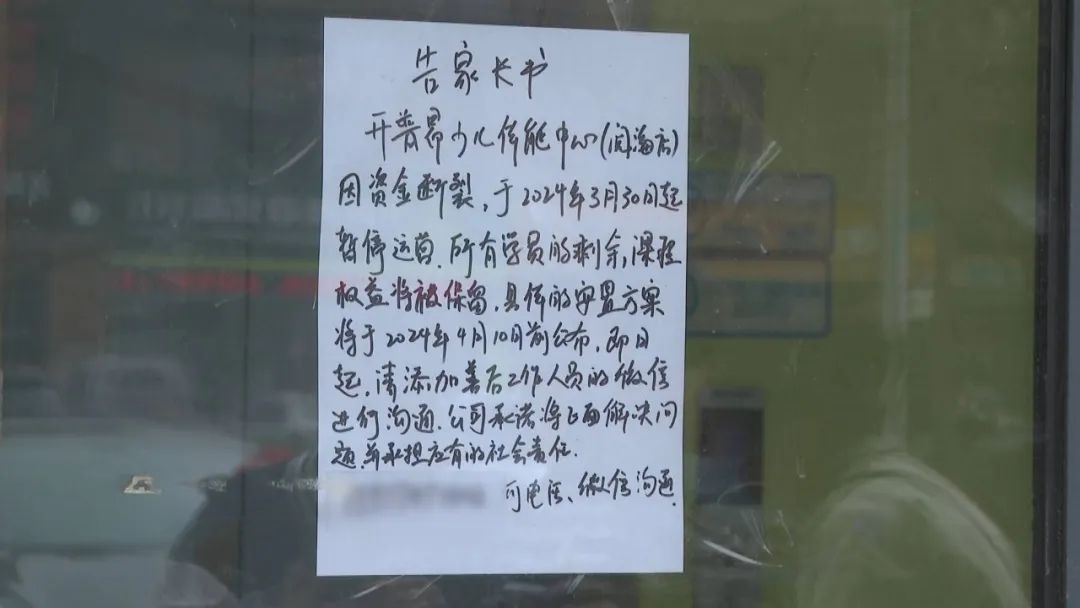 告家长书
开普昂少儿体能中心(闰海店)
因资金断裂,于2024年3月30日起
暂停运营.所有学员的剩余课程
权益将被保留,具体的安置方案
将于2024年4月10日前公布,即日
起,请添加善后工作人员的微信
进行沟通.公司承诺将正面解决问
题并承担应有的社会责任.
可电话、微信沟通.